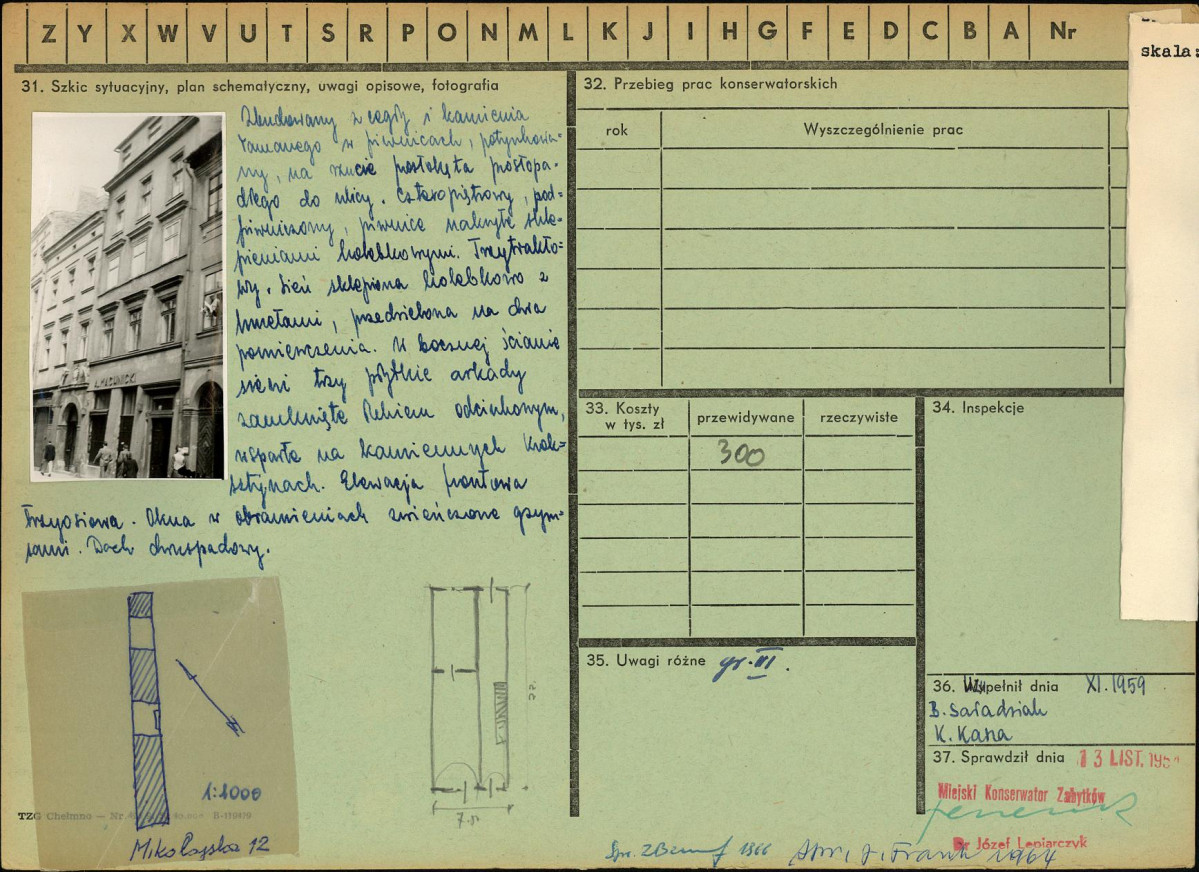 Z Y X W V U T S R P O N M L K J I H G F E D C B A Nr
skala:
31. Szkic sytuacyjny, plan schematyczny, uwagi opisowe, fotografia
Zbudowany z cegły i kamienia
łamanego w piwnicach, potynkowa-
ny, na rzucie prostokąta prostopa-
dłego do ulicy. Czteropiętrowy, pod-
piwniczony, piwnice nakryte skle-
pieniami kolebkowymi. Trzytrakto-
wy. Sień sklepiona kolebkowo z
lunetami, przedzielona na dwa
pomieszczenia. W bocznej ścianie
sieni trzy płytkie arkady
zamknięte łukiem odcinkowym,
wsparte na kamiennych krok-
sztynach. Elewacja frontowa
trzyosiowa. Okna w obramieniach zwieńczone gzym-
sami. Dach dwuspadowy.
1:1000
TZG Chełmno – Nr
Mikołajska 12
7.50
32. Przebieg prac konserwatorskich
rok
Wyszczególnienie prac
33. Koszty
w tys. zł
przewidywane
rzeczywiste
300
34. Inspekcje
35. Uwagi różne gr. III.
36. Wypełnił dnia XI.1959
K. Kasza
37. Sprawdził dnia 13 LIST. 195
Miejski Konserwator Zabytków
Dr Józef Lepiarczyk
1966
1964